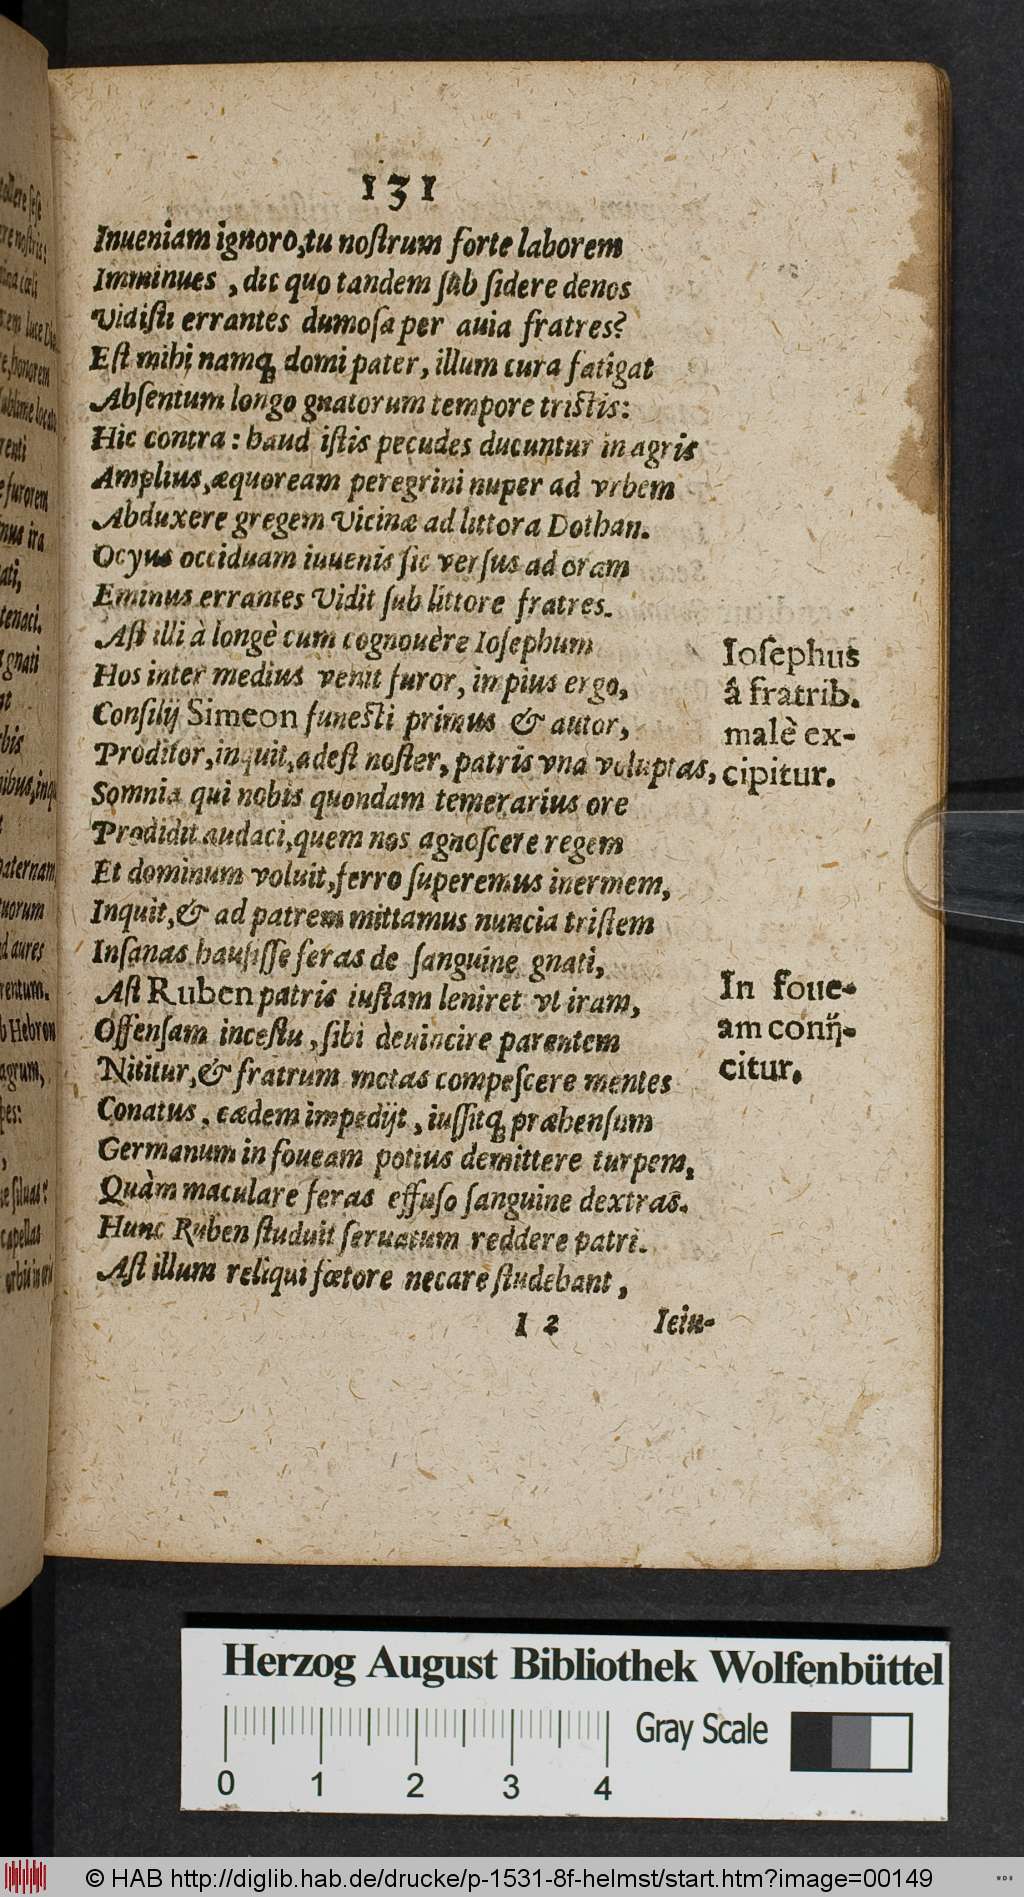 131
Inueniam ignoro, tu noſtrum forte laborem
Imminues, dic quo tandem ſub ſidere denos
Vidiſti errantes dumoſa per auia fratres?
Eſt mihi namq; domi pater, illum cura fatigat
Abſentum longo gnatorum tempore triſtis:
Hic contra: haud iſtis pecudes ducuntur in agris
Amplius, æquoream peregrini nuper ad vrbem
Abduxere gregem Vicinæ ad littora Dothan.
Ocyus occiduam iuuenis ſic verſus ad oram
Eminus errantes Vidit ſub littore fratres.
Aſt illi à longè cum cognouêre Ioſephum
Hos inter medius venit furor, impius ergo,
Conſilij Simeon funeſti primus & autor,
Proditor, inquit, adeſt noſter, patris vna voluptas,
Somnia qui nobis quondam temerarius ore
Prodidit audaci, quem nos agnoſcere regem
Et dominum voluit, ferro ſuperemus inermem,
Inquit, & ad patrem mittamus nuncia triſtem
Inſanas hauſiſſe feras de ſanguine gnati,
Aſt Ruben patris iuſtam leniret vt iram,
Offenſam inceſtu, ſibi dèuincire parentem
Nititur, & fratrum motas compeſcere mentes
Conatus, cædem impedijt, iuſſitq; præhenſum
Germanum in foueam potius demittere turpem,
Quàm maculare feras effuſo ſanguine dextras.
Hunc Ruben ſtuduit ſeruatum reddere patri.
Aſt illum reliqui fœtore necare ſtudebant,
I 2 Ieiu-
Ioſephus
â fratrib.
malè ex-
cipitur.
In foue-
am conij-
citur.
Herzog August Bibliothek Wolfenbüttel
0 1 2 3 4
Gray Scale
© HAB http://diglib.hab.de/drucke/p-1531-8f-helmst/start.htm?image=00149